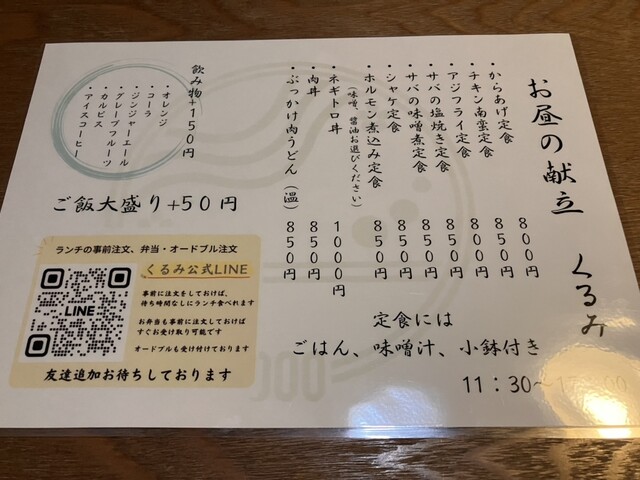 お昼の献立 くるみ
・からあげ定食 800円
・チキン南蛮定食 800円
・アジフライ定食 850円
・サバの塩焼き定食 850円
・サバの味噌煮定食 850円
・シャケ定食
・ホルモン煮込み定食 850円
（味噌、醤油お選びください）
・ネギトロ丼 1000円
・肉丼 850円
・ぶっかけ肉うどん（温） 850円
定食には
ごはん、味噌汁、小鉢付き
11：30～
飲み物+150円
・オレンジ
・コーラ
・ジンジャーエール
・グレープフルーツ
・カルピス
・アイスコーヒー
ご飯大盛り+50円
ランチの事前注文、弁当・オードブル注文
くるみ公式LINE
LINE
事前に注文をしておけば、
待ち時間なしにランチ食べれます
お弁当も事前に注文しておけば
すぐお受け取り可能です
オードブルも受け付けております
友達追加お待ちしております